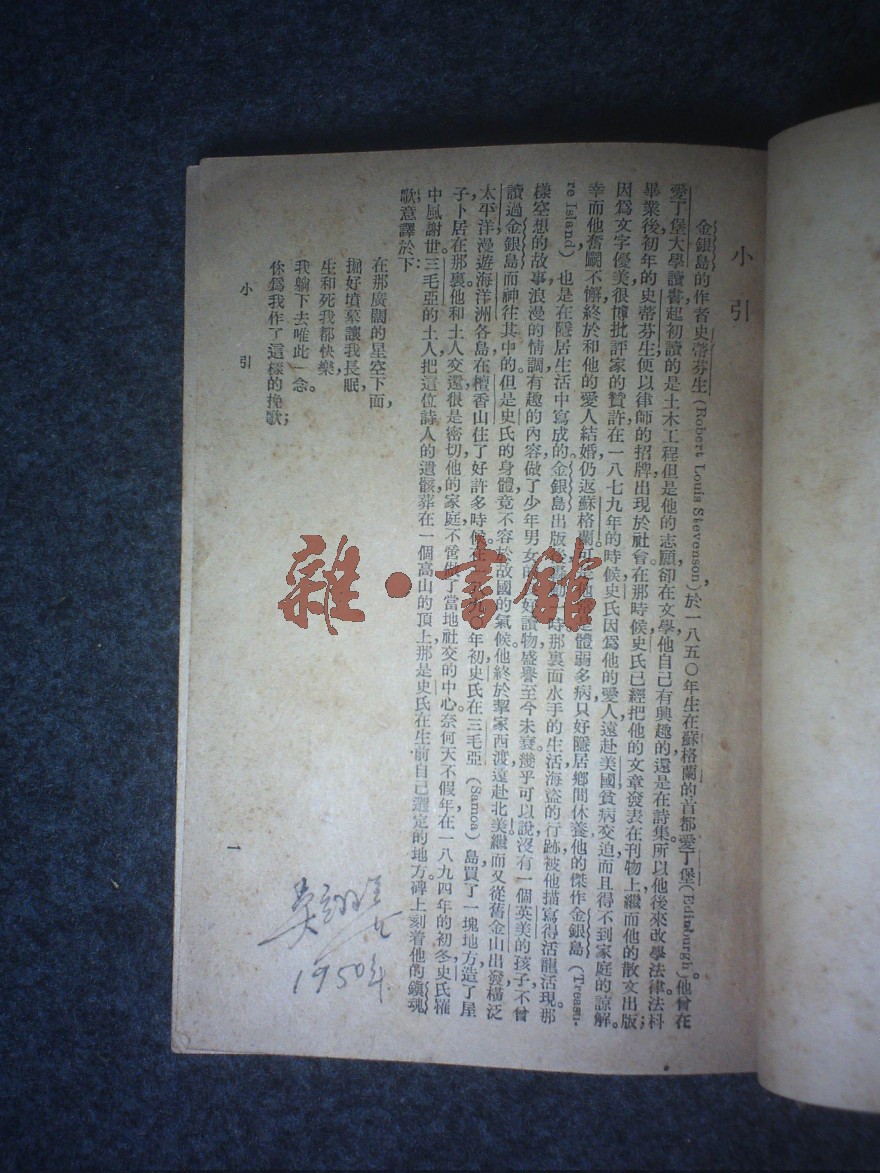 小引
金銀島的作者史蒂芬生(Robert Louis Stevenson),於一八五〇年生在蘇格蘭的首都愛丁堡(Edinburgh)。他曾在
愛丁堡大學讀書,起初讀的是土木工程,但是他的志願卻在文學,他自己有興趣的還是在詩集,所以他後來改學法律。法科
畢業後,初年的史蒂芬生便以律師的招牌出現於社會,在那時候史氏已經把他的文章發表在刊物上,繼而他的散文出版;
因爲文字優美,很博批評家的贊許。在一八七九年的時候,史氏因爲他的愛人遠赴美國,貧病交迫,而且得不到家庭的諒解。
幸而他奮鬭不懈,終於和他的愛人結婚,仍返蘇格蘭。體弱多病,只好隱居鄉間休養。他的傑作金銀島(Treasu-
re Island)也是在隱居生活中寫成的。金銀島出版後,時那裏面水手的生活,海盜的行跡,被他描寫得活龍活現。那
樣空想的故事,浪漫的情調,有趣的內容,做了少年男女的好讀物,盛譽至今未衰,幾乎可以說沒有一個英美的孩子,不曾
讀過金銀島而神往其中的。但是史氏的身體竟不容於故國的氣候。他終於挈家西渡,遠赴北美,繼而又從舊金山出發,橫泛
太平洋,漫遊海洋洲各島,在檀香山住了好許多時候。年初,史氏在三毛亞(Samoa)島買了一塊地方,造了屋
子,卜居在那裏。他和土人交還很是密切,他的家庭不啻做了當地社交的中心。奈何天不假年,在一八九四年的初冬,史氏罹
中風謝世。三毛亞的土人,把這位詩人的遺骸葬在一個高山的頂上,那是史氏在生前自己選定的地方。碑上刻着他的鎮魂
歌,意譯於下:
在那廣闊的星空下面,
掘好墳墓讓我長眠,
生和死我都快樂,
我躺下去唯此一念。
你爲我作了這樣的挽歌;
小引
一
1950年
雜·書館